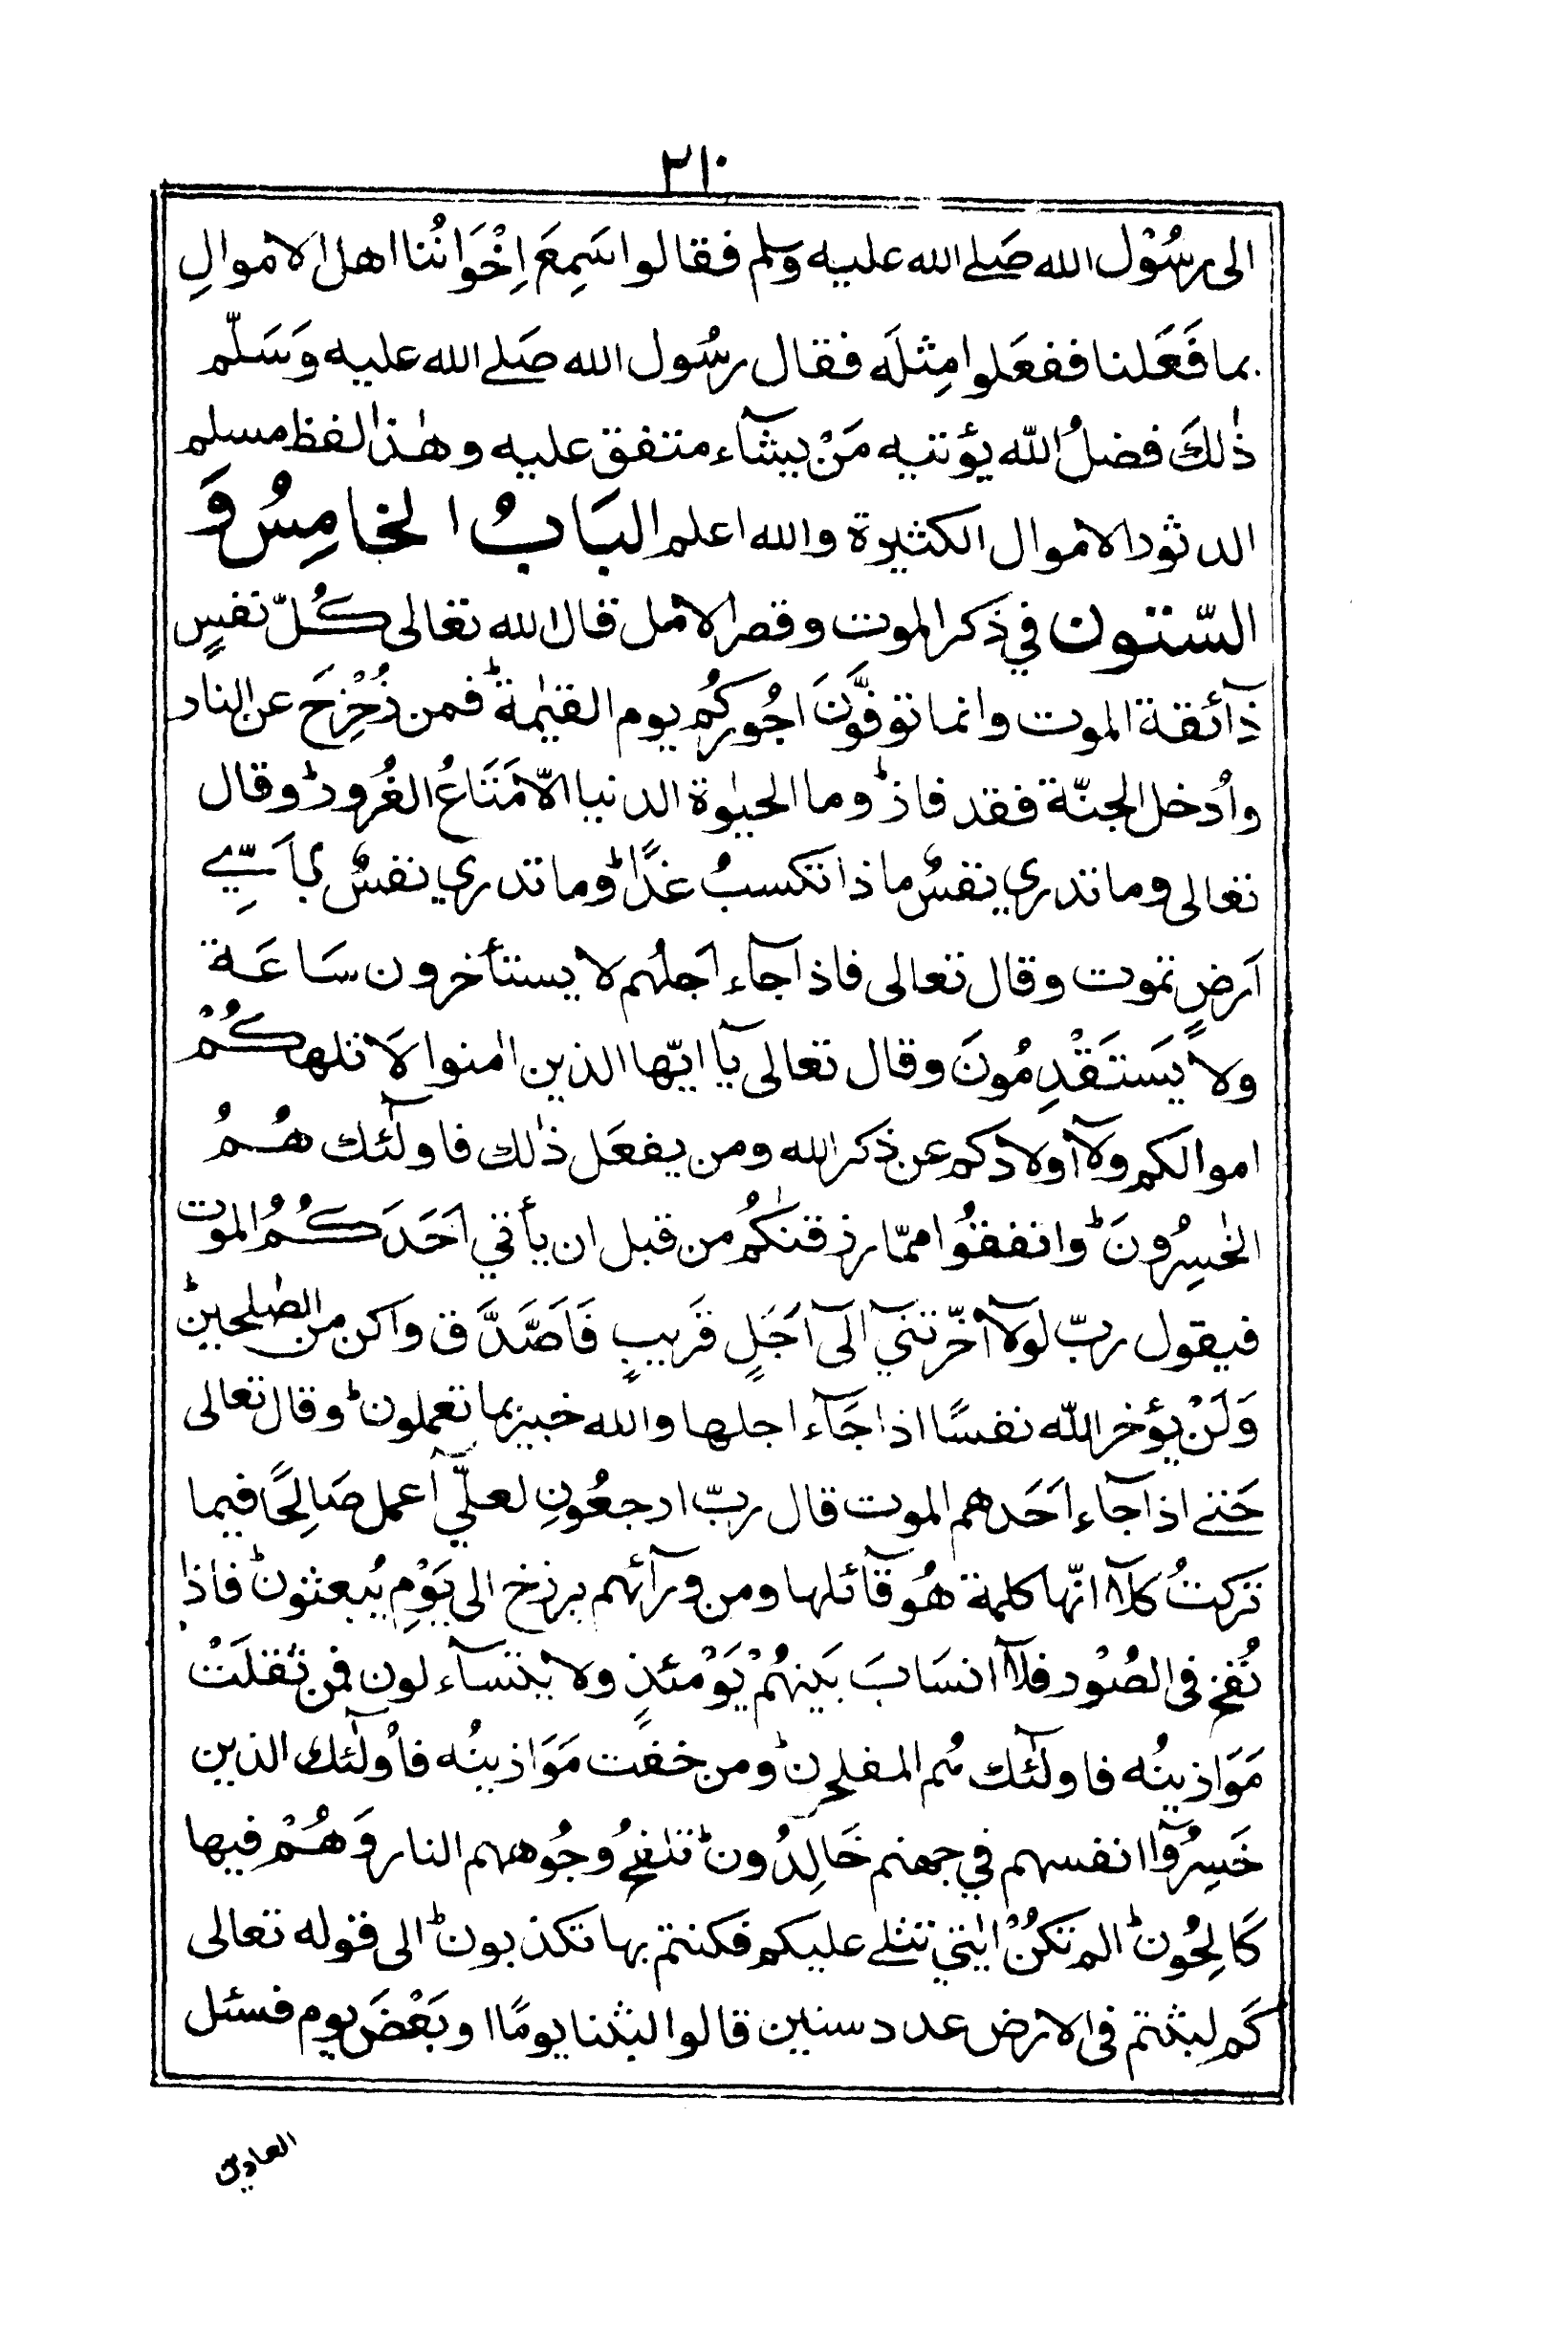 ٢١٠
الى رسُوْل الله صَلے الله عليه وسلم فقالوا سَمِعَ اِخْوَانُنا اهل الاموالِ
بما فَعَلنا ففعَلوا مِثلَه فقال رسُول الله صَلے الله عليه وَسَلّم
ذٰلكَ فضلُ الله يؤتيه مَنْ يشآء متفق عليه وهٰذا لفظ مسلم
الدثور الاموال الكثيرة والله اعلم البَابُ الخامِسُ وَ
السّتون في ذكر الموت وقصر الامل قال الله تعالى كُلّ نفسٍ
ذآئقة الموت وانما توفَّوْنَ اجُوركُم يوم القيٰمة ؕ فمن زُحْزِحَ عن النار
واُدخل الجنّة فقد فاز ؕ وما الحيٰوة الدنيا الّا مَتَاعُ الغُرور ؕ وقال
تعالى وما تدري نفسٌ ماذا تكسبُ غدًا ؕ وما تدري نفسٌ باَيِّے
اَرضٍ تموت وقال تعالى فاذا جآء اَجلُهم لا يستأخرون سَاعَة
ولا يَستَقْدِمُونَ وقال تعالى يآ ايّها الذين اٰمنوا لَا تلهكُمْ
اموالكم ولآ اولادكم عن ذكر الله ومن يفعَل ذٰلك فاولٰٓئك هُمُ
الخٰسِرُونَ ؕ وانفقُوا ممّا رزقنٰكُم من قبل ان يأتي اَحَدَكُمُ الموت
فيقول ربّ لولآ اخّرتنيٓ الىٓ اَجَلٍ قَريبٍ فَاَصَّدَّق واكن من الصٰلحين ؕ
وَلَنْ يؤخر الله نفسًا اذا جَآء اجلها والله خبير بما تعملون ؕ وقال تعالى
حَتے اذا جآء اَحَدهم الموت قال ربّ ارجعُونِ لعلّيٓ اعمل صَالِحًا فيما
تركتُ كلآ انّها كلمة هُو قآئلها ومن ورآئهم برزخ الى يَوْمِ يُبعثون ؕ فاذا
نُفخ فى الصُوْر فلآ انسَابَ بَينهُمْ يَوْمئذٍ ولا يتسآء لون فمن ثقلَتْ
مَوَازينُه فاولٰٓئك هُم المفلحون ؕ ومن خفت مَوَازينُه فاُولٰٓئك الذين
خَسِرُوٓا انفسهم في جهنم خَالِدُون ؕ تلفحُ وُجُوههم النار وَهُمْ فيها
كَالِحُون ؕ الم تكنْ اٰيٰتي تتلے عليكم فكنتم بها تكذبون ؕ الى قوله تعالى
كَم لبثتم فى الارض عدد سنين قالوا لبثنا يومًا او بَعْضَ يوم فسئل
العادين